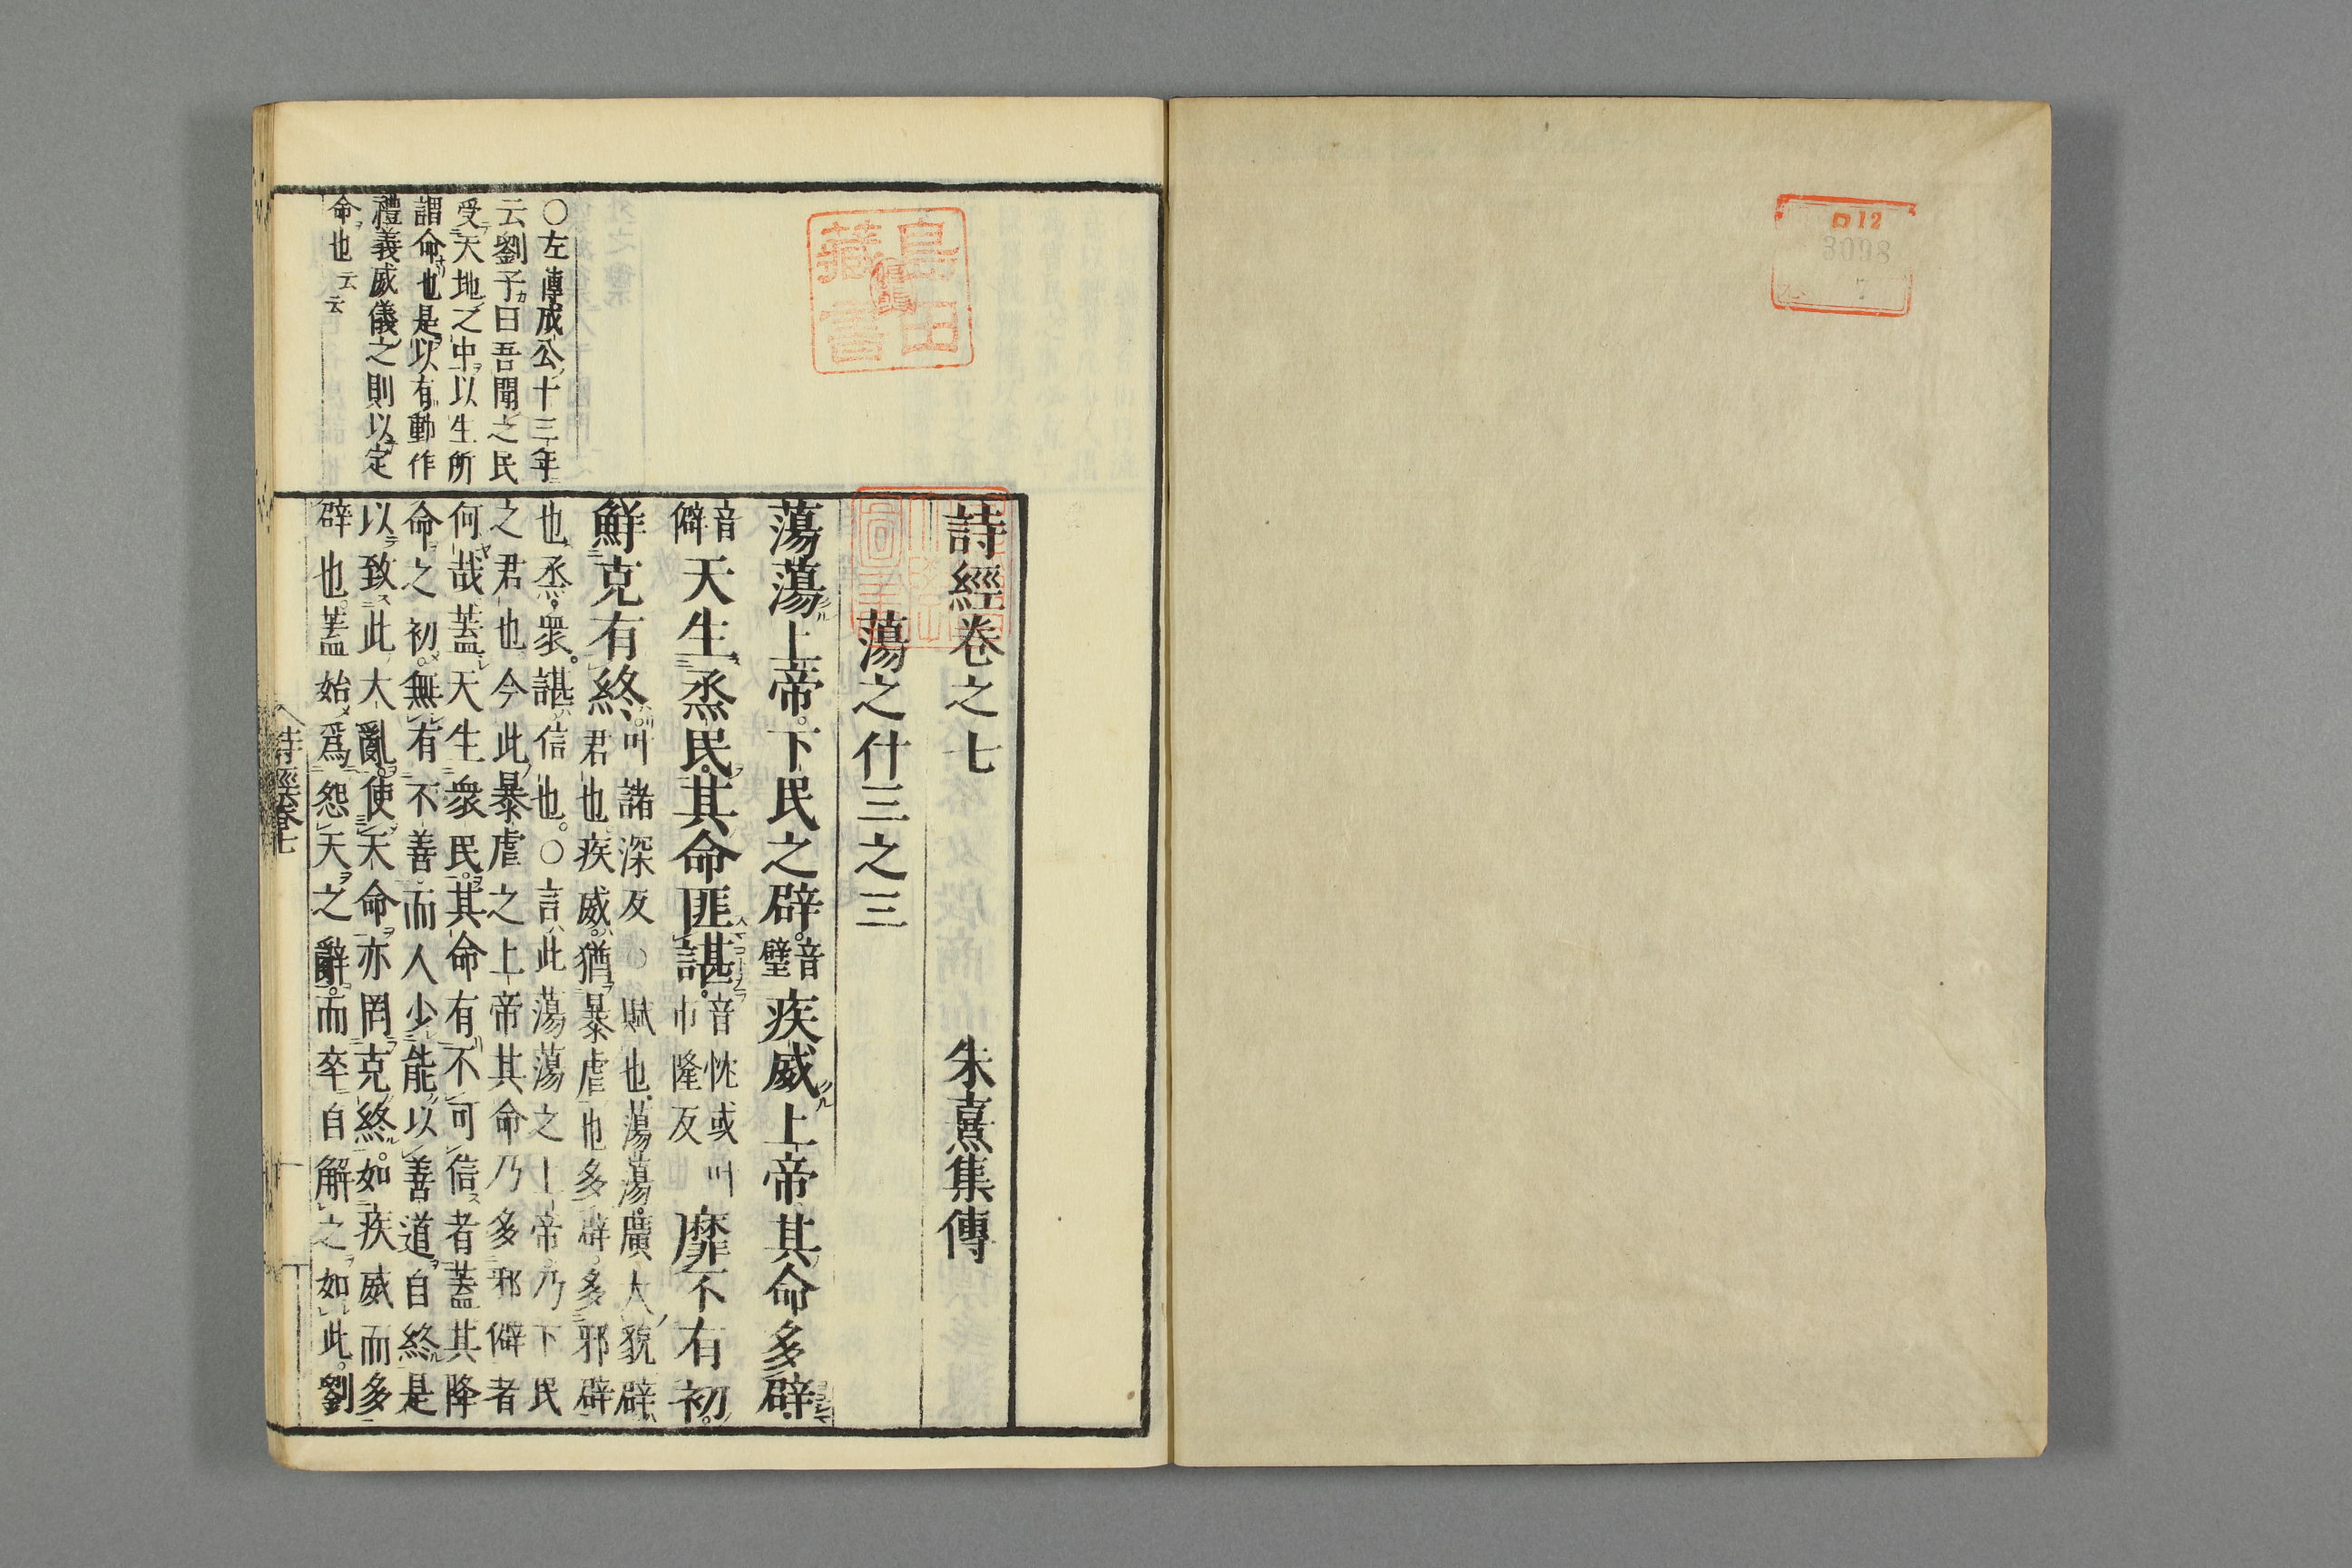 ロ12
3098
7
島田
藏書
詩經卷之七
朱熹集傳
蕩之什三之三
蕩蕩上帝。下民之辟。音璧疾威上帝其命多辟。
音僻天生烝民。其命匪諶。音忱或叶市隆反靡不有初。
鮮克有終。叶諸深反〇賦也。蕩蕩。廣大貌辟
君也。疾威。猶暴虐也多辟。多邪辟
也烝。衆。諶信也。〇言此蕩蕩之上帝乃下民
之君也今此暴虐之上帝其命乃多邪僻者
何哉蓋天生衆民。其命有不可信者蓋其降
命之初。無有不善。而人少能以善道自終是
以致此大亂。使天命亦罔克終。如疾威而多
辟也。蓋始爲怨天之辭。而卒自解之如此。劉
〇左傳成公十三年
云劉子曰吾聞之民
受天地之中以生所
謂命也是以有動作
禮義威儀之則以定
命也云云
詩經卷七